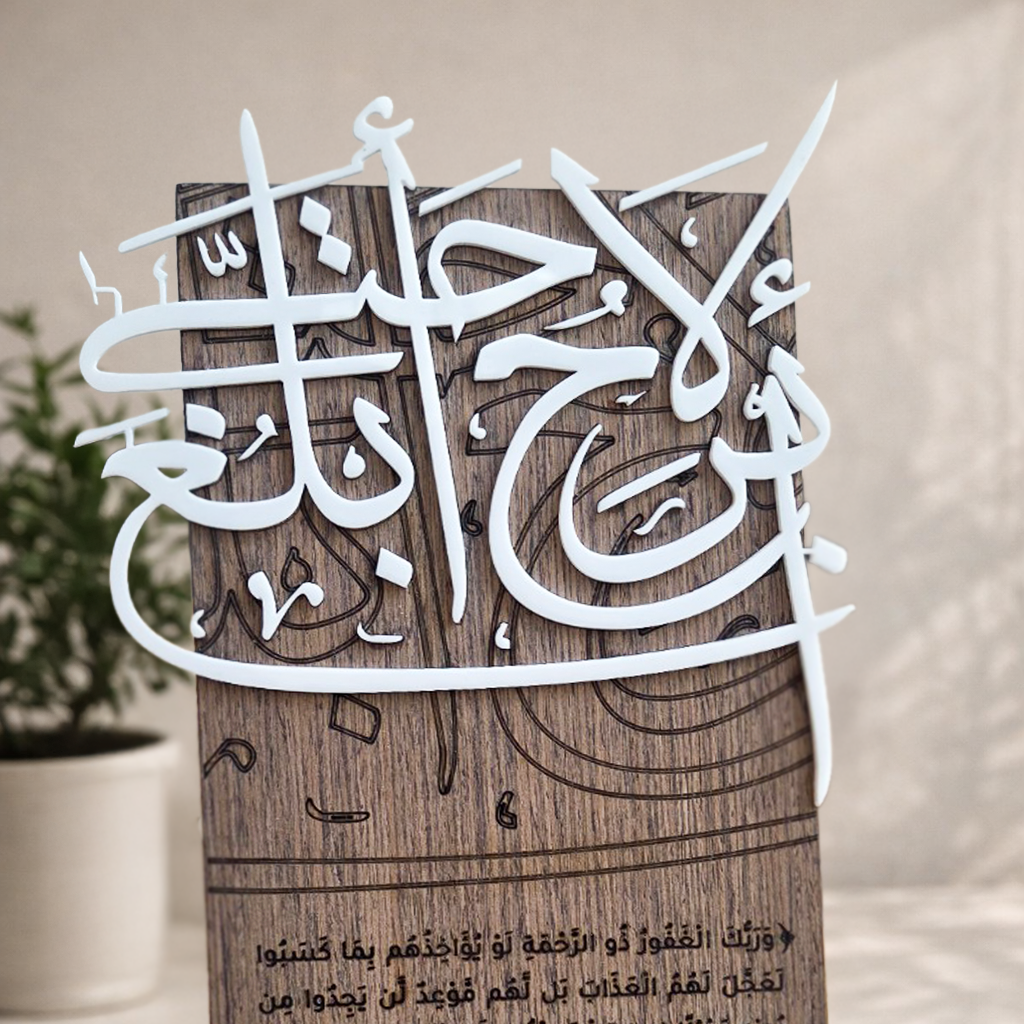 لا أبرح حتى أبلغ
﴿وَرَبُّكَ الْغَفُورُ ذُو الرَّحْمَةِ لَوْ يُؤَاخِذُهُم بِمَا كَسَبُوا
لَعَجَّلَ لَهُمُ الْعَذَابَ بَل لَّهُم مَّوْعِدٌ لَّن يَجِدُوا مِن